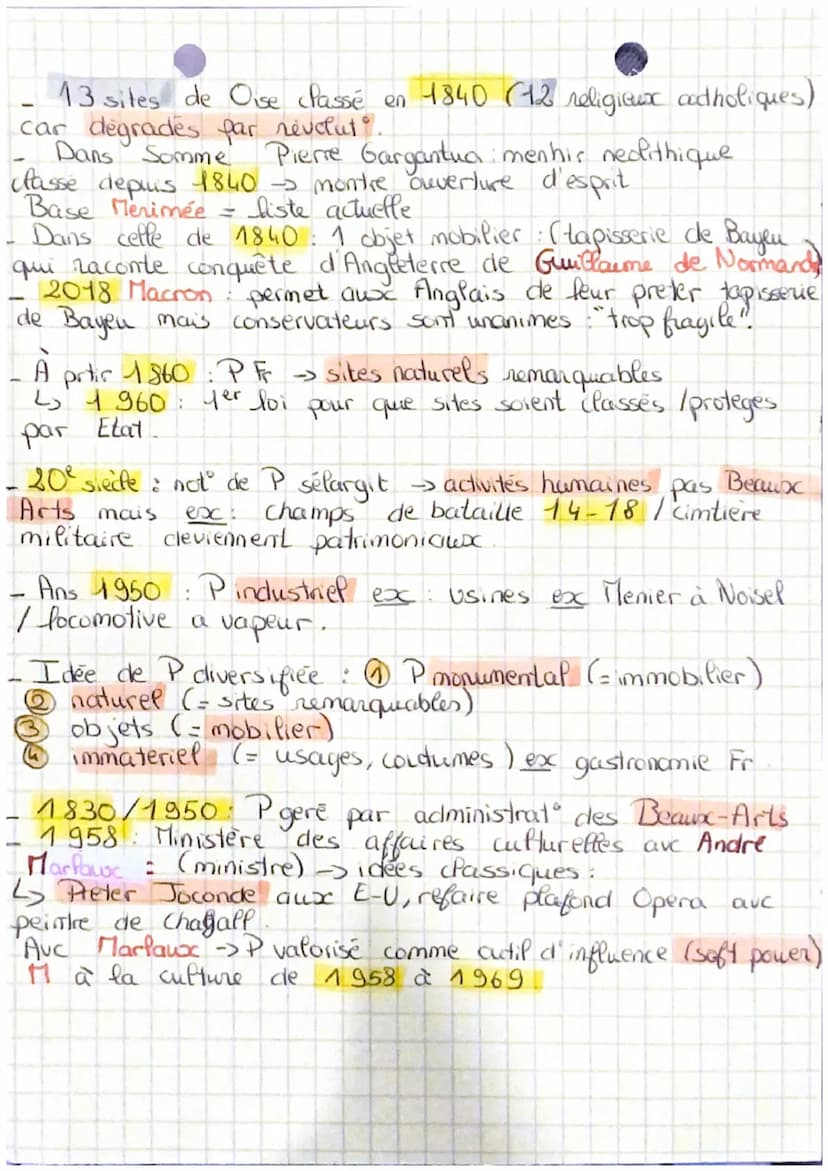 - 13 sites de Oise classé en 1840 (12 religieux catholiques)
car dégradés par révolut°.
- Dans Somme Pierre Gargantua : menhir neolithique
classé depuis 1840 -> montre ouverture d'esprit
Base Merimée = liste actuelle
- Dans celle de 1840 : 1 objet mobilier : (tapisserie de Bayeu
qui raconte conquête d'Angleterre de Guillaume de Normand)
- 2018 Macron : permet aux Anglais de leur preter tapisserie
de Bayeu mais conservateurs sont unanimes : "trop fragile".
- À prtir 1860 : P Fr -> sites naturels remarquables
↳ 1960 : 1er loi pour que sites soient classés / protégés
par Etat.
- 20e siècle : not° de P sélargit -> activités humaines pas Beaux
Arts mais ex : champs de bataille 14-18 / cimtière
militaire deviennent patrimoniaux.
- Ans 1950 : P industriel ex : usines ex Menier à Noisel
/ locomotive a vapeur.
- Idée de P diversifiée : ① P monumental (= immobilier)
② naturel (= sites remarquables)
③ objets (= mobilier)
④ immatériel (= usages, coutumes) ex gastronomie Fr.
- 1830/1950 : P geré par administrat° des Beaux-Arts
- 1958 : Ministère des affaires culturelles avc André
Marlaux : (ministre) -> idées classiques :
↳ Preter Joconde aux E-U, refaire plafond Opera avc
peintre de Chagall.
Avc Marlaux -> P valorisé comme outil d'influence (soft power)
M à la culture de 1958 à 1969.